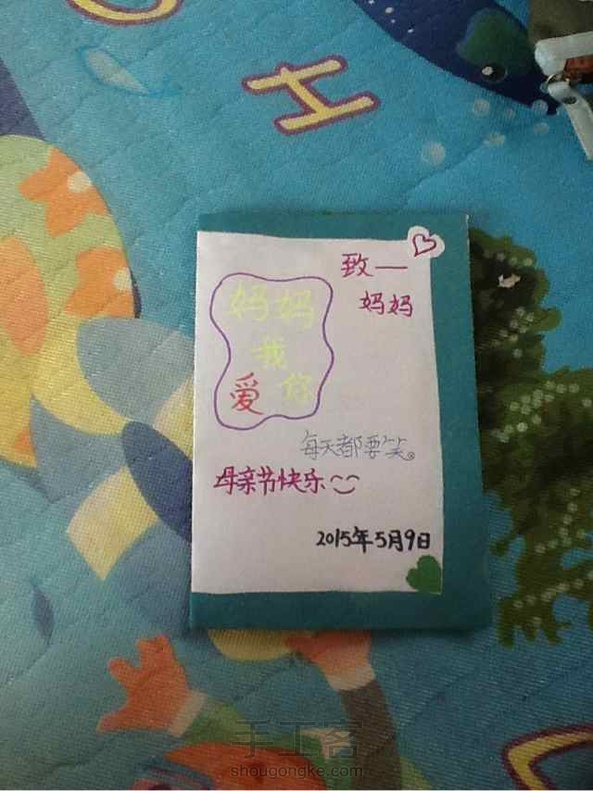 H
致—
妈妈
妈妈
我
爱你
每天都要笑。
母亲节快乐
2015年5月9日
手工客
shougongke.com